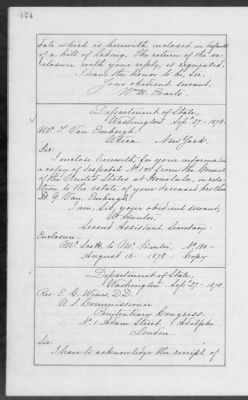 date which is herewith enclosed in default
of a bill of lading. The return of the en-
closure with your reply, is requested.
I have the honor to be, Sir,
Your obedient servant,
Wm. M. Evarts.
Department of State,
Washington Sept 27. 1878.
Wm. T. Van Emburgh,
Utica New York.
Sir:
I enclose herewith for your information
a copy of dispatch No. 180 from the Consul
of the United States at Honolulu, in rela-
tion to the estate of your deceased brother
D. G. Van Emburgh.
I am, Sir, your obedient servant,
W. Hunter,
Second Assistant Secretary
Enclosure.
Mr. Scott to Mr. Hunter No. 180 -
August 16 - 1878 - Copy
Department of State,
Washington Sept 27. 1878.
Rev. E. C. Wines, D.D.
U. S. Commissioner
Penitentiary Congress.
No. 1 Adam Street Adelphi
London.
Sir:
I have to acknowledge the receipt of